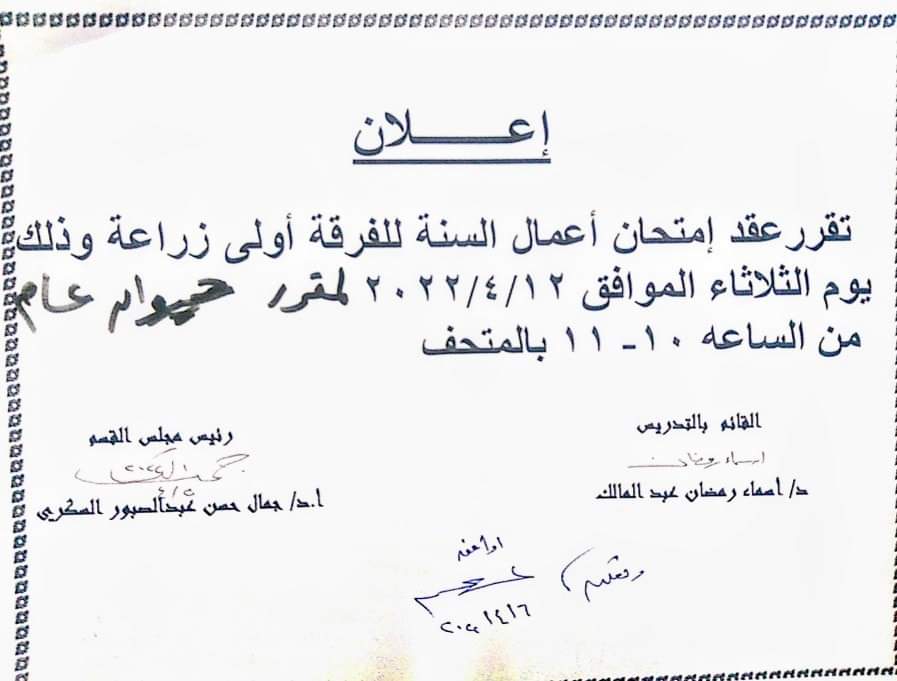 إعـــــــلان
تقرر عقد إمتحان أعمال السنة للفرقة أولى زراعة وذلك
يوم الثلاثاء الموافق ٢٠٢٢/٤/١٢ لمقرر حيوان عام
من الساعه ١٠ـ ١١ بالمتحف
القائم بالتدريس
أسماء رمضان
د/ أسماء رمضان عبد المالك
رئيس مجلس القسم
٤/٥
أ.د/ جمال حسن عبدالصبور السكرى
اوافق
٢٠٢٢/٤/٦